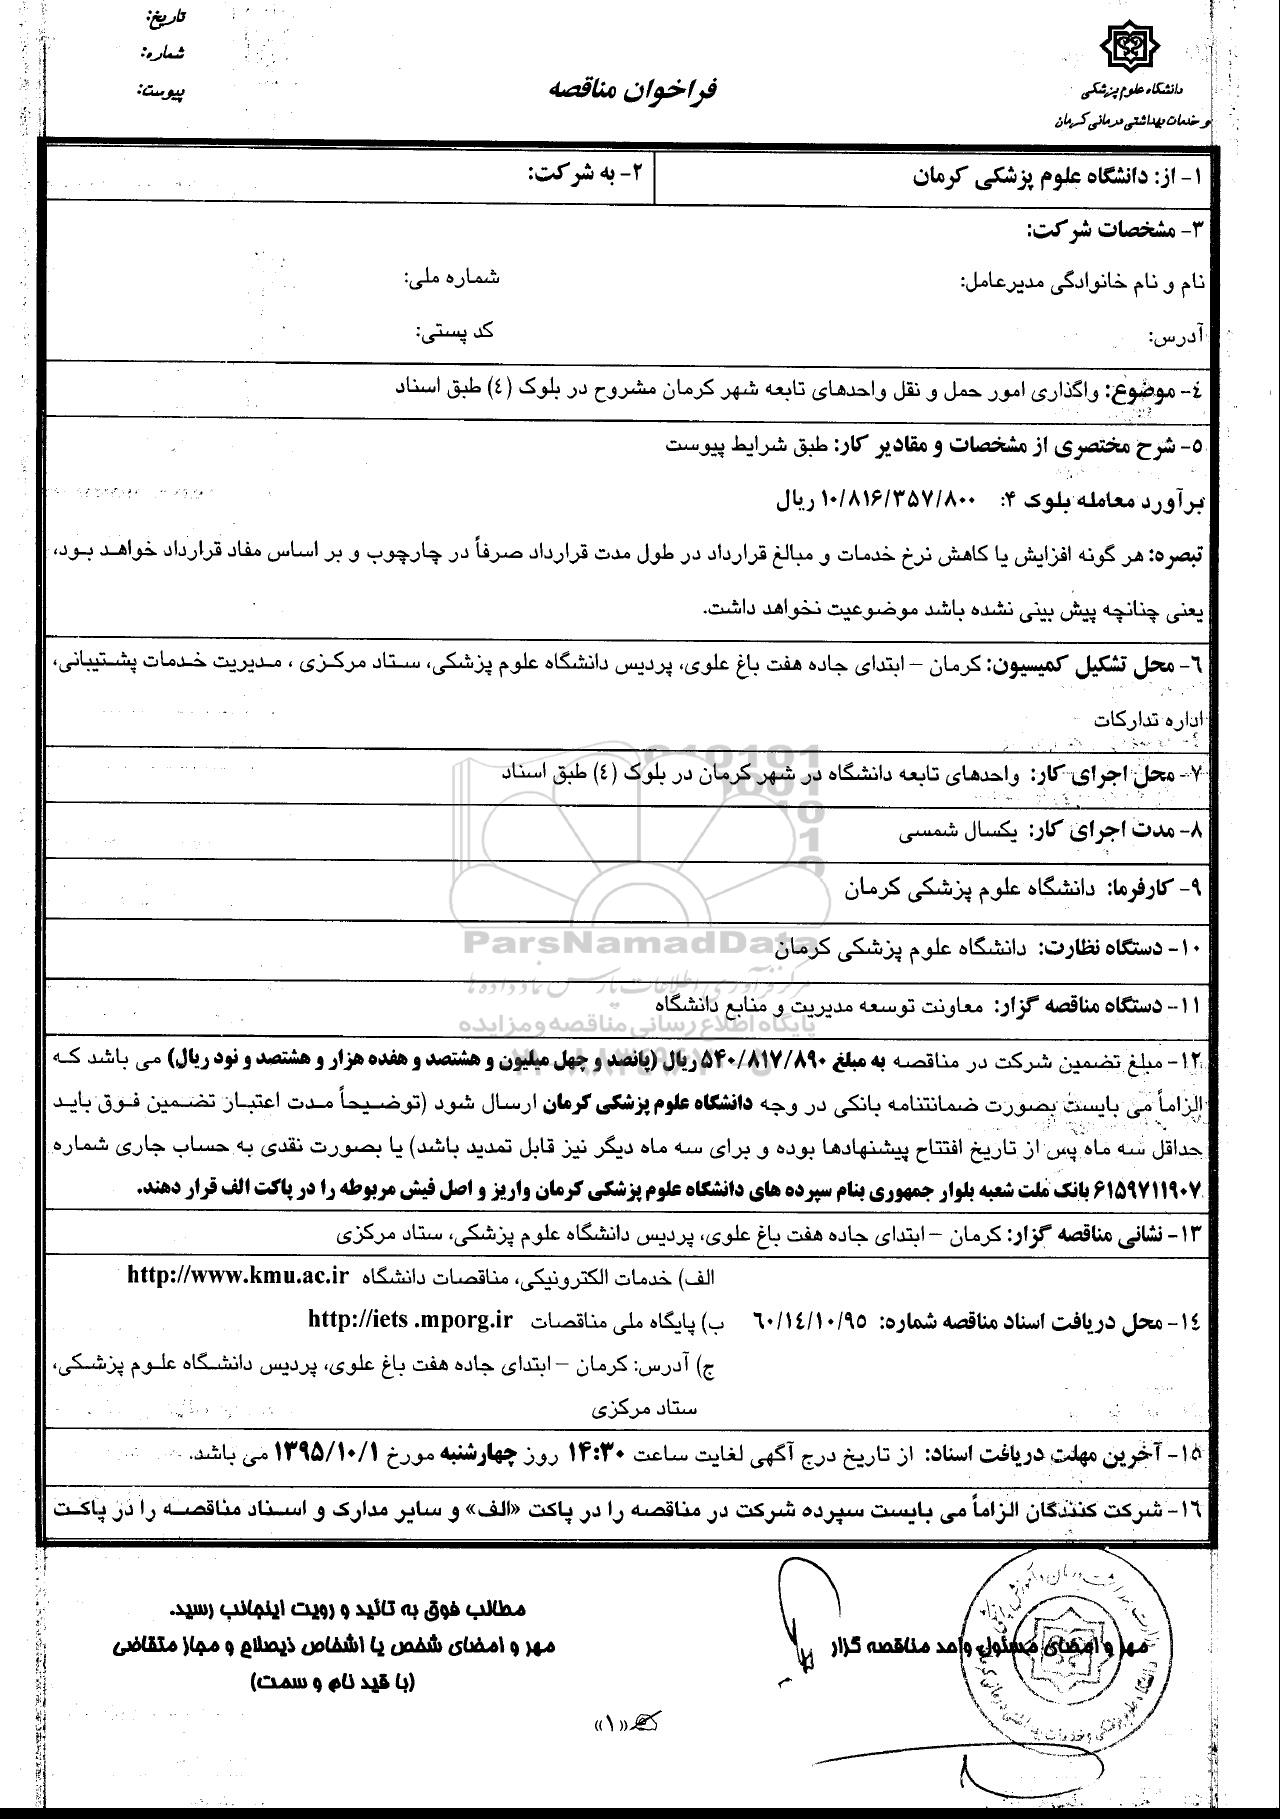 تاریخ:
شماره:
پیوست:
دانشگاه علوم پزشکی
و خدمات بهداشتی درمانی کرمان
فراخوان مناقصه
۱- از: دانشگاه علوم پزشکی کرمان
۲- به شرکت:
۳- مشخصات شرکت:
نام و نام خانوادگی مدیرعامل:
شماره ملی:
آدرس:
کد پستی:
۴- موضوع: واگذاری امور حمل و نقل واحدهای تابعه شهر کرمان مشروح در بلوک (۴) طبق اسناد
۵- شرح مختصری از مشخصات و مقادیر کار: طبق شرایط پیوست
برآورد معامله بلوک ۴: ۱۰/۸۱۶/۳۵۷/۸۰۰ ریال
تبصره: هر گونه افزایش یا کاهش نرخ خدمات و مبالغ قرارداد در طول مدت قرارداد صرفاً در چارچوب و بر اساس مفاد قرارداد خواهد بود،
یعنی چنانچه پیش بینی نشده باشد موضوعیت نخواهد داشت.
۶- محل تشکیل کمیسیون: کرمان – ابتدای جاده هفت باغ علوی، پردیس دانشگاه علوم پزشکی، ستاد مرکزی ، مدیریت خدمات پشتیبانی،
اداره تدارکات
۷- محل اجرای کار: واحدهای تابعه دانشگاه در شهر کرمان در بلوک (۴) طبق اسناد
۸- مدت اجرای کار: یکسال شمسی
۹- کارفرما: دانشگاه علوم پزشکی کرمان
ParsNamadData
۱۰- دستگاه نظارت: دانشگاه علوم پزشکی کرمان
مرکز فرآوری اطلاعات پارس نماد داده ها
۱۱- دستگاه مناقصه گزار: معاونت توسعه مدیریت و منابع دانشگاه
پایگاه اطلاع رسانی مناقصه و مزایده
۱۲- مبلغ تضمین شرکت در مناقصه به مبلغ ۵۴۰/۸۱۷/۸۹۰ ریال (پانصد و چهل میلیون و هشتصد و هفده هزار و هشتصد و نود ریال) می باشد که
الزاماً می بایست بصورت ضمانتنامه بانکی در وجه دانشگاه علوم پزشکی کرمان ارسال شود (توضیحاً مدت اعتبار تضمین فوق باید
حداقل سه ماه پس از تاریخ افتتاح پیشنهادها بوده و برای سه ماه دیگر نیز قابل تمدید باشد) یا بصورت نقدی به حساب جاری شماره
۶۱۵۹۷۱۱۹۰۷ بانک ملت شعبه بلوار جمهوری بنام سپرده های دانشگاه علوم پزشکی کرمان واریز و اصل فیش مربوطه را در پاکت الف قرار دهند.
۱۳- نشانی مناقصه گزار: کرمان – ابتدای جاده هفت باغ علوی، پردیس دانشگاه علوم پزشکی، ستاد مرکزی
الف) خدمات الکترونیکی، مناقصات دانشگاه http://www.kmu.ac.ir
۱۴- محل دریافت اسناد مناقصه شماره: ۶۰/۱۴/۱۰/۹۵ ب) پایگاه ملی مناقصات http://iets .mporg.ir
ج) آدرس: کرمان – ابتدای جاده هفت باغ علوی، پردیس دانشگاه علوم پزشکی،
ستاد مرکزی
۱۵- آخرین مهلت دریافت اسناد: از تاریخ درج آگهی لغایت ساعت ۱۴:۳۰ روز چهارشنبه مورخ ۱۳۹۵/۱۰/۱ می باشد.
۱۶- شرکت کنندگان الزاماً می بایست سپرده شرکت در مناقصه را در پاکت «الف» و سایر مدارک و اسناد مناقصه را در پاکت
مهر و امضای مسئول واحد مناقصه گزار
مطالب فوق به تائید و رویت اینجانب رسید.
مهر و امضای شخص یا اشخاص ذیصلاح و مجاز متقاضی
(با قید نام و سمت)
«۱»